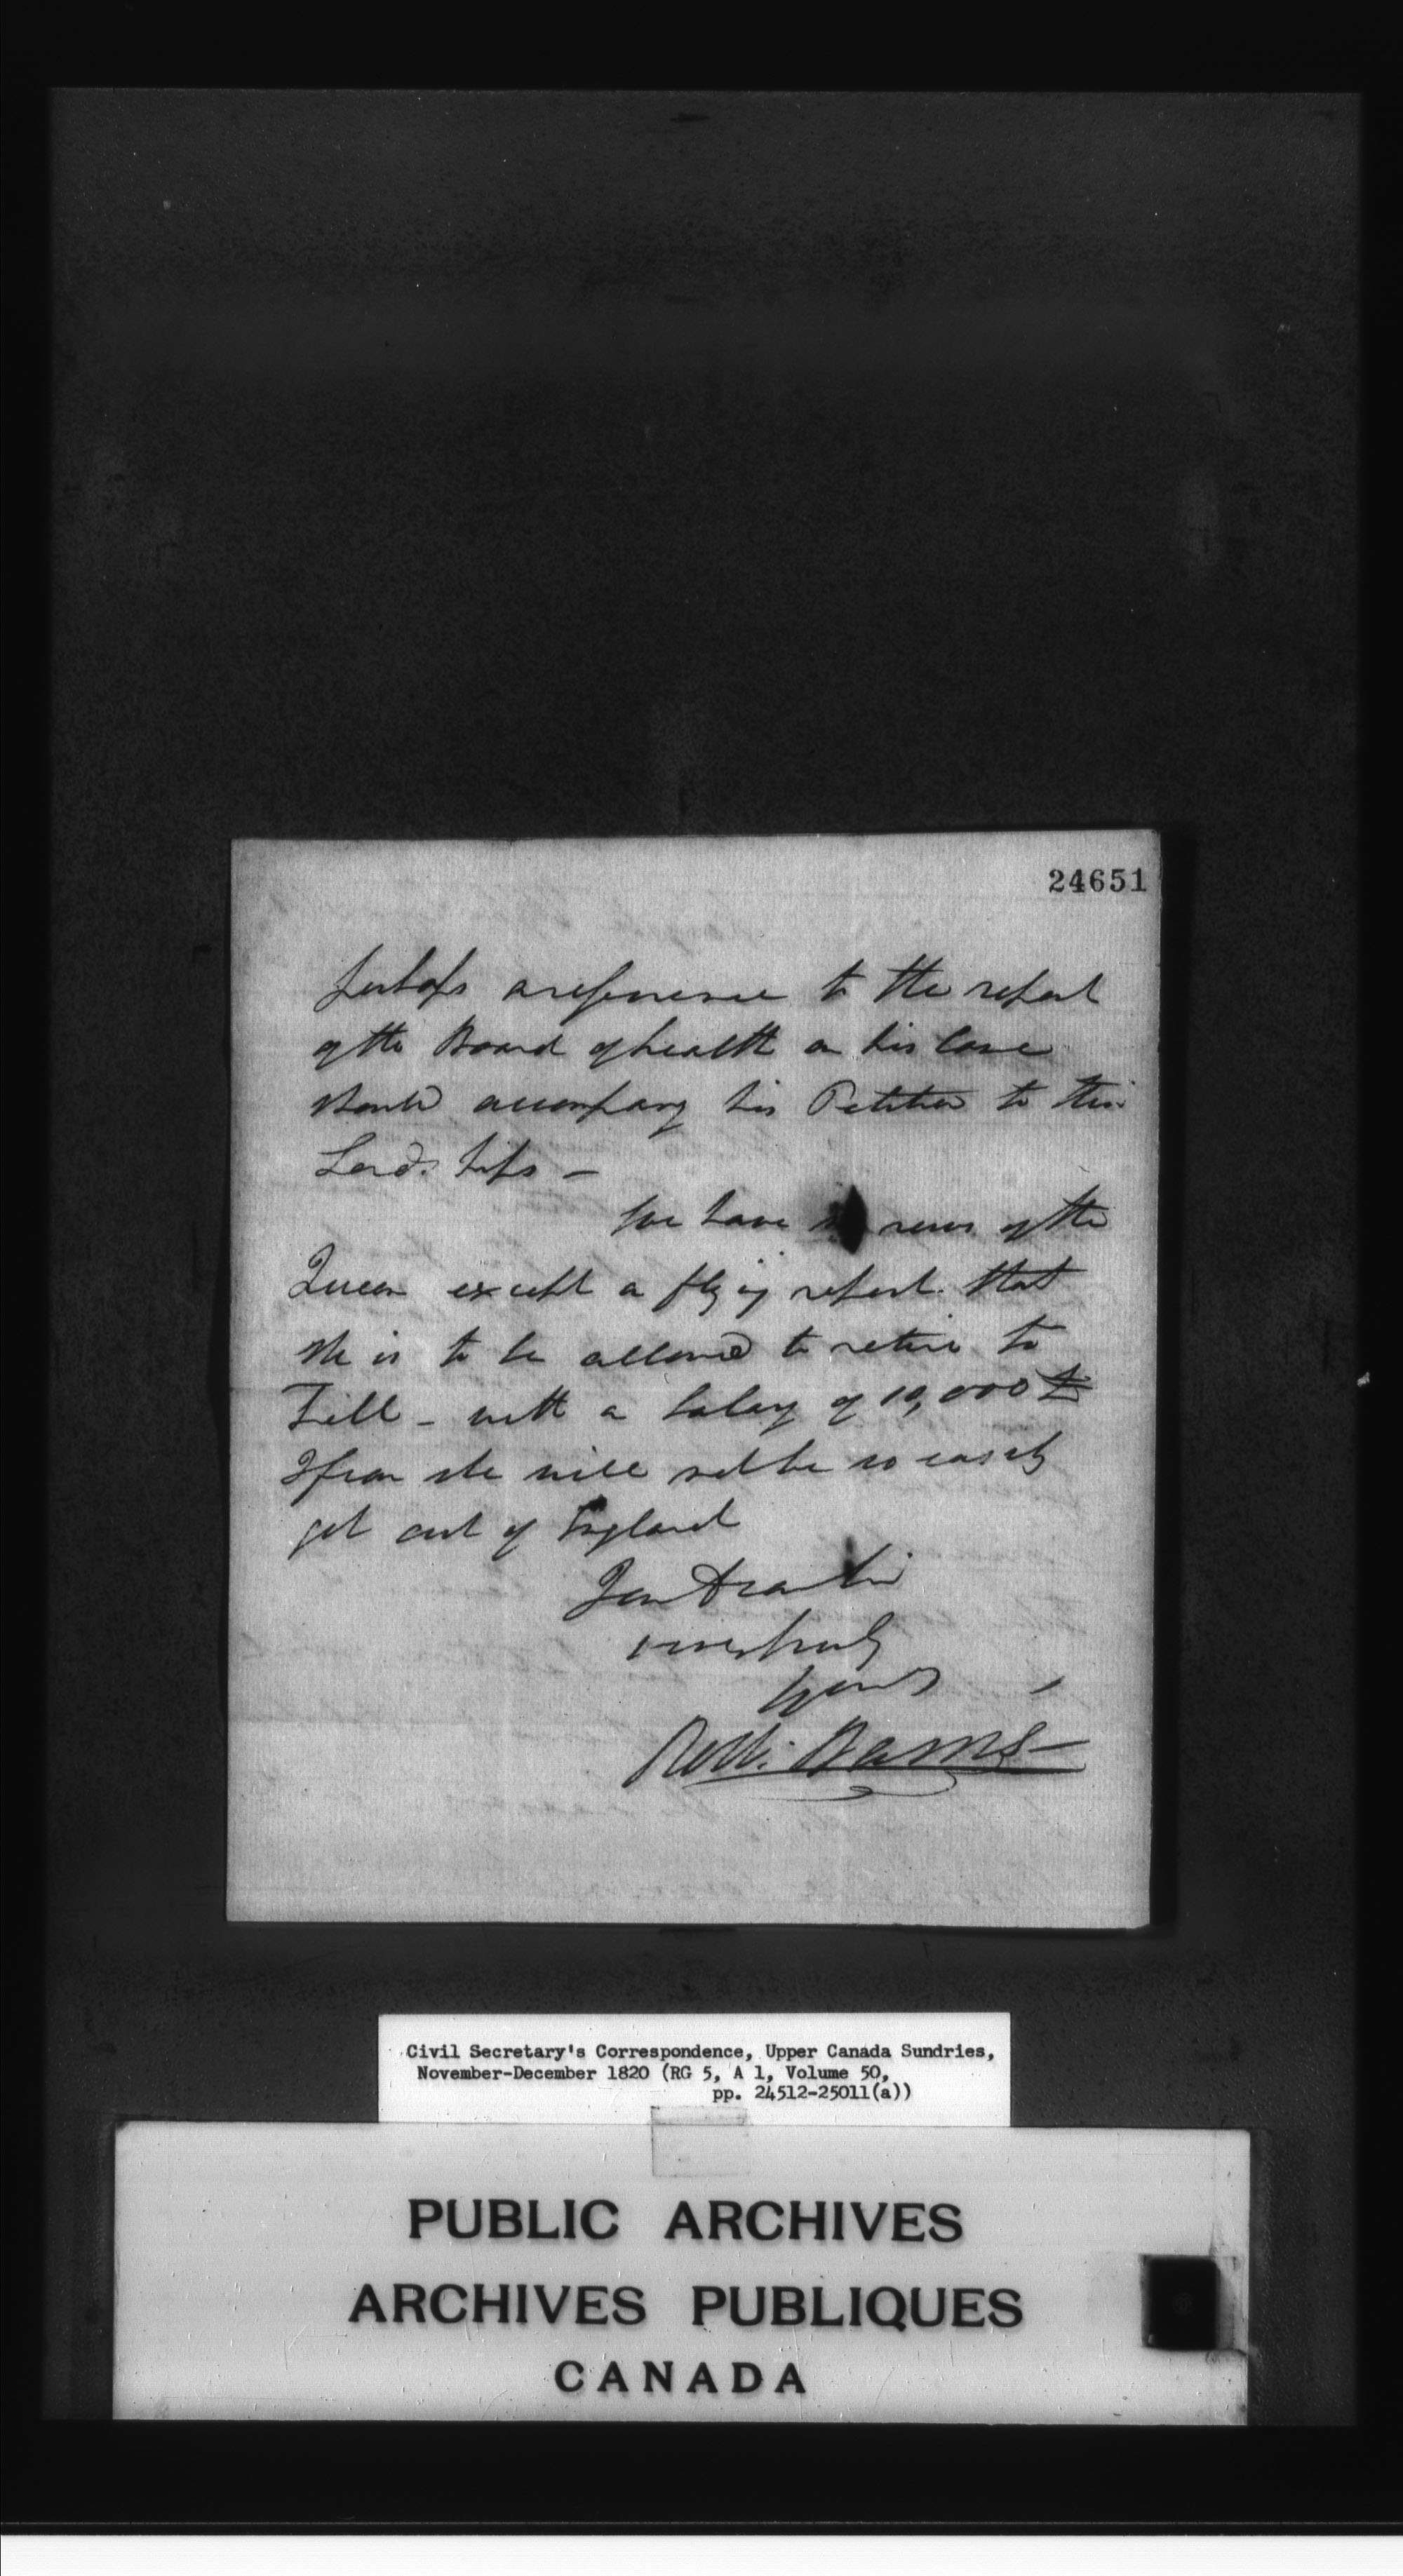 24651
perhaps a reference to the report
of the Board of health on his Case
should accompany his Petition to their
Lord.ships –
We have no news of the
Queen except a flying report that
she is to be allowed to retire to
with a Salary of 10,000 £
I fear she will not be so easily
get out of England
very truly
yours
Robt. Barrie
Civil Secretary's Correspondence, Upper Canada Sundries,
November-December 1820 (RG 5, A 1, Volume 50,
pp. 24512-25011(a))
PUBLIC ARCHIVES
ARCHIVES PUBLIQUES
CANADA